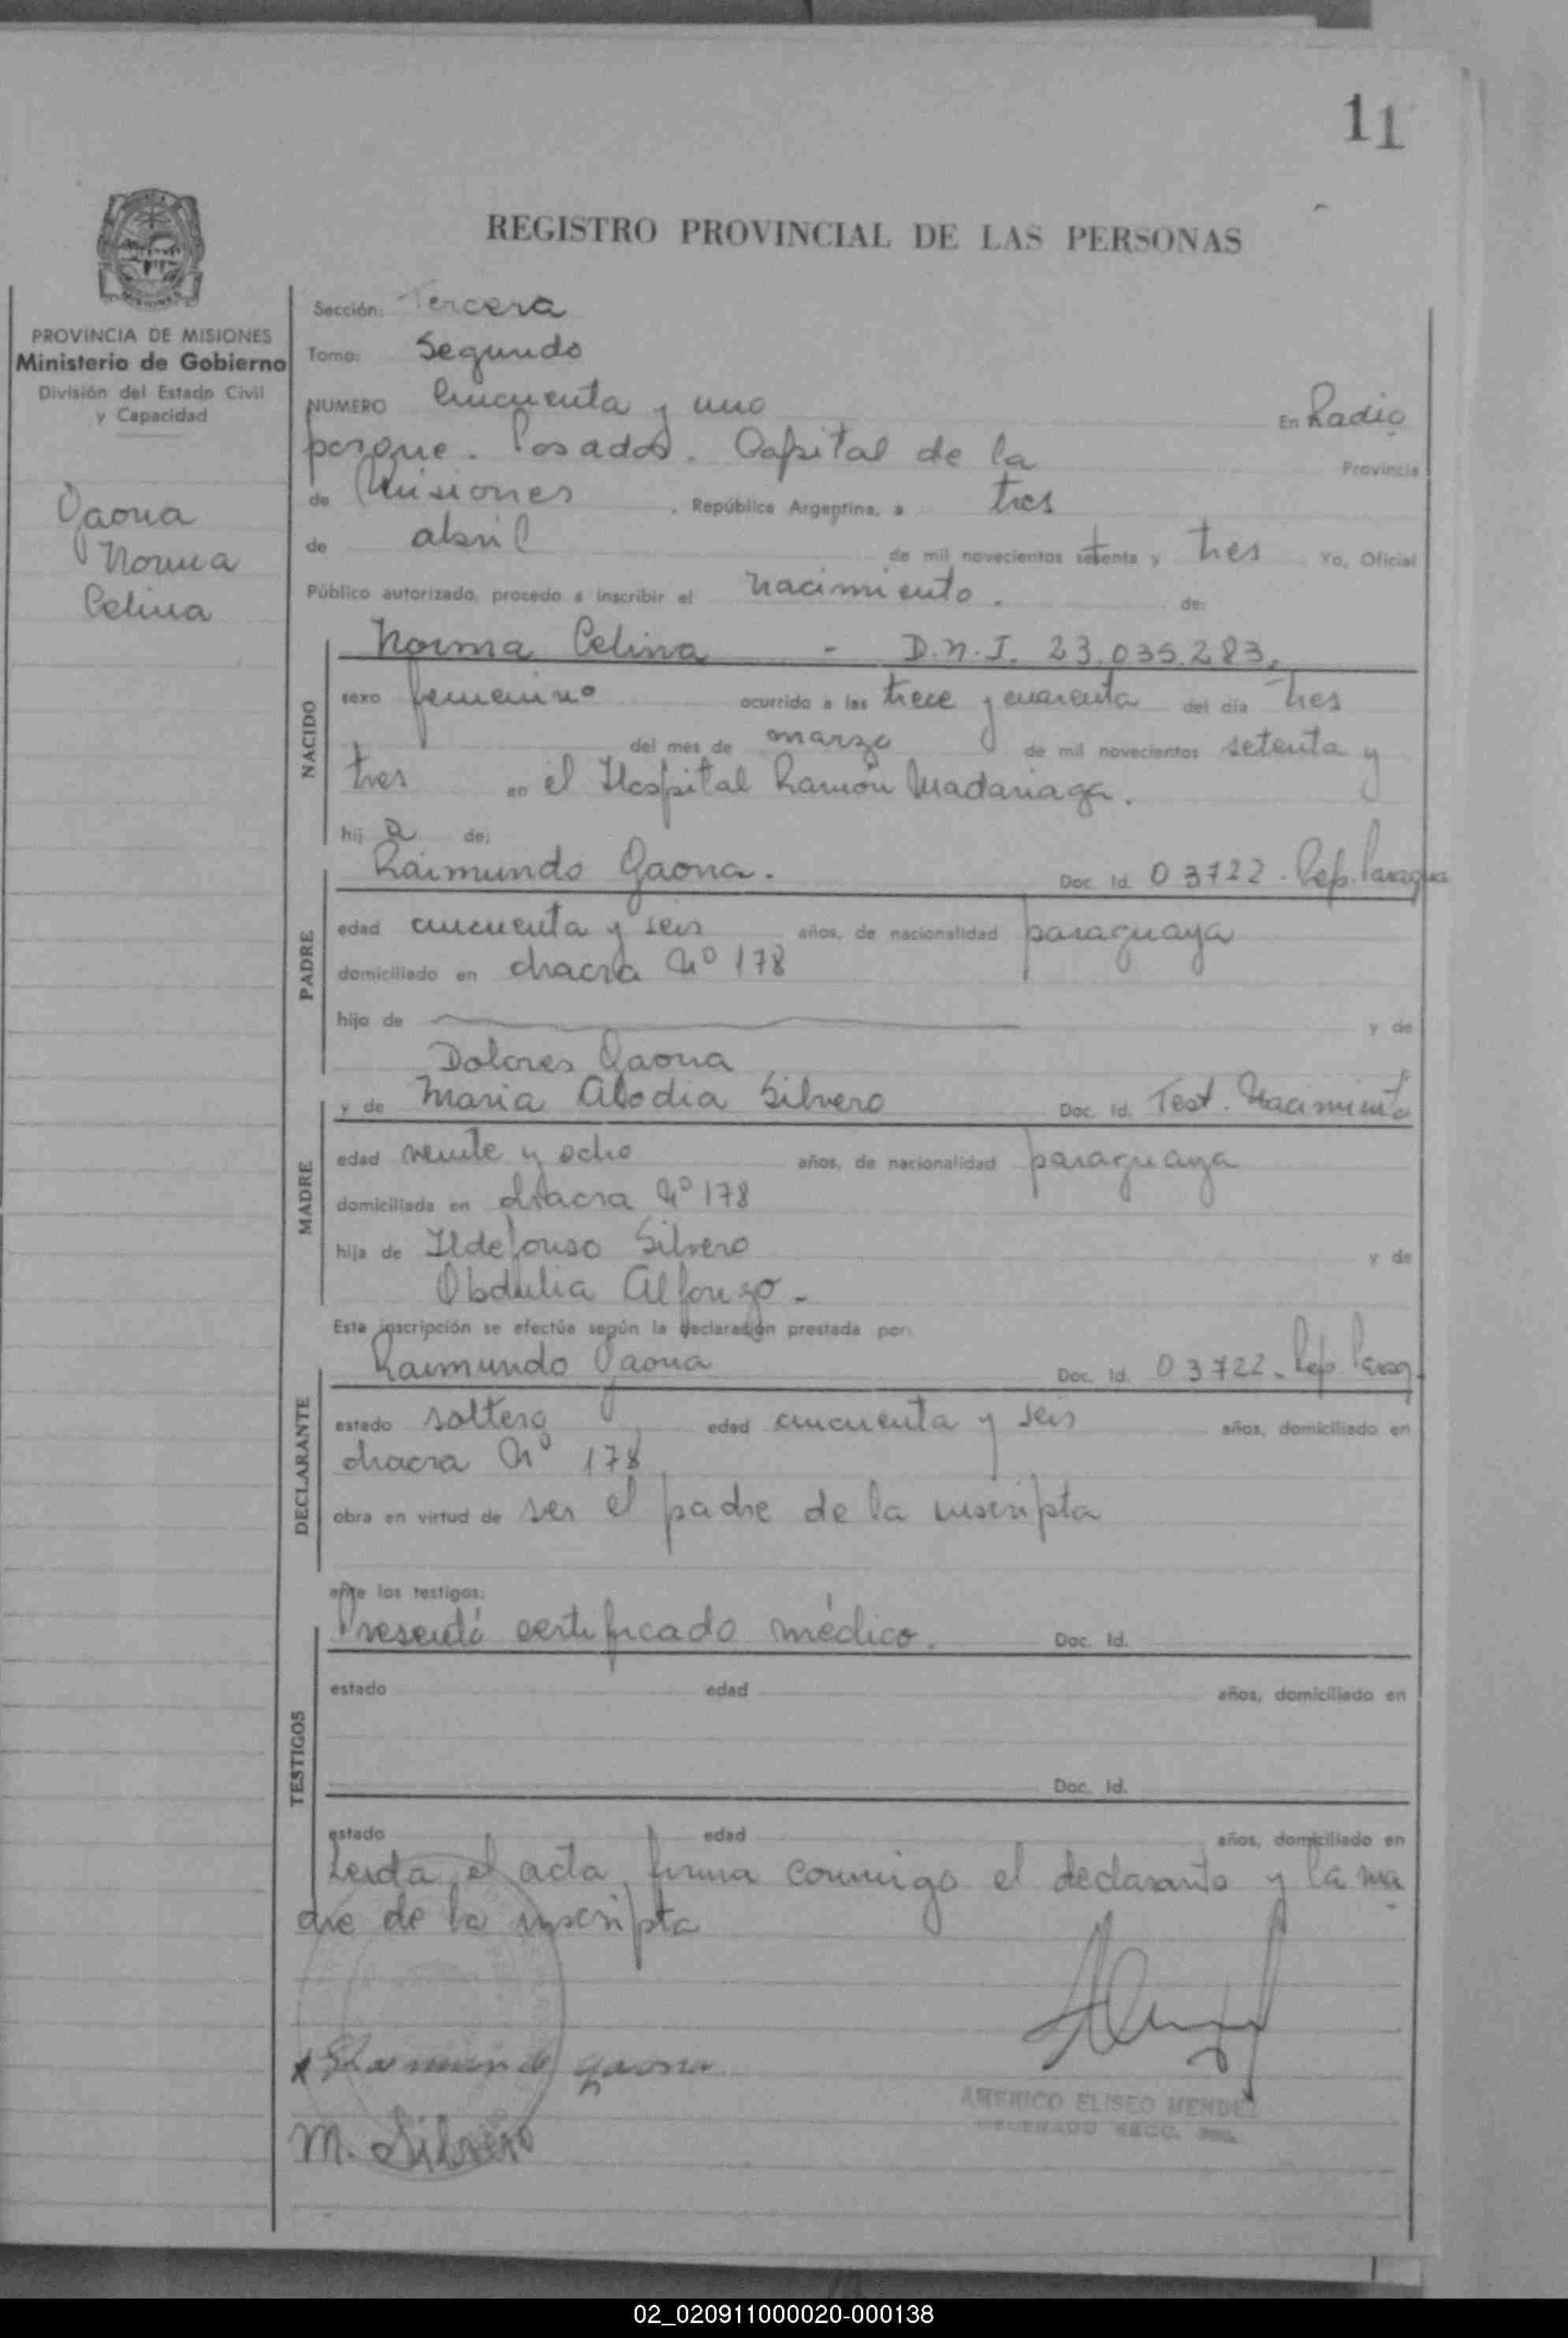 11
REGISTRO PROVINCIAL DE LAS PERSONAS
PROVINCIA DE MISIONES
Ministerio de Gobierno
División del Estado Civil
y Capacidad
Gaona
Norma
Celina
Sección: Tercera
Tomo: Segundo
NUMERO Cincuenta y uno En Radio
parque. Posadas. Capital de la Provincia
de Misiones, República Argentina, a tres
de abril de mil novecientos setenta y tres Yo, Oficial
Público autorizado, procedo a inscribir el nacimiento. de:
NACIDO
Norma Celina - D.N.I. 23.035.283.
sexo femenino ocurrido a las trece y cuarenta del día tres
del mes de marzo de mil novecientos setenta y
tres en el Hospital Ramón Madariaga.
hij a de:
PADRE
Raimundo Gaona. Doc. Id. 03722. Rep. Paragua
edad cincuenta y seis años, de nacionalidad paraguaya
domiciliado en chacra Nº 178
hijo de y de
Dolores Gaona
MADRE
y de Maria Alodia Silvero Doc. Id. Test. Nacimiento
edad veinte y ocho años, de nacionalidad paraguaya
domiciliada en chacra Nº 178
hija de Ildefonso Silvero y de
Obdulia Alfonzo.
Esta inscripción se efectúa según la declaración prestada por:
DECLARANTE
Raimundo Gaona Doc. Id. 03722. Rep. Parag.
estado soltero edad cincuenta y seis años, domiciliado en
chacra Nº 178
obra en virtud de ser el padre de la inscripta
ante los testigos:
TESTIGOS
Presentó certificado médico. Doc. Id.
estado edad años, domiciliado en
Doc. Id.
estado edad años, domiciliado en
Leida el acta, firma conmigo el declarante y la ma
dre de la inscripta
Raimundo gaona
M. Silvero
AMERICO ELISEO MENDEZ
DELEGADO SECC.
02_020911000020-000138